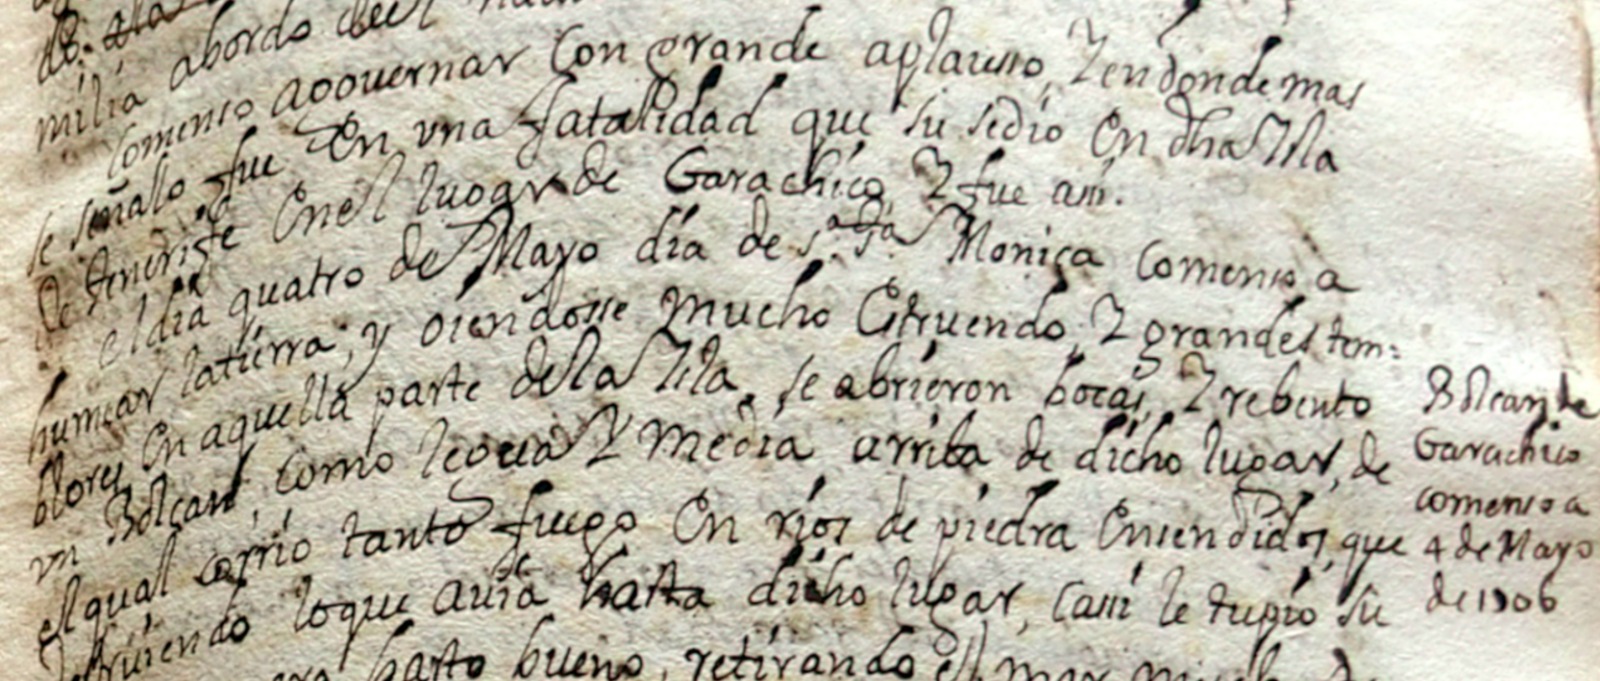 milia abordo del
Comenso agovernar Con grande aplauso, Y en donde mas
se señallo fue En una fatalidad que susedio En dha Isla
de thenerife Enel lugar de Garachico, Y fue assi.
el dia quatro de Mayo dia de Sta Monica Comenso a
humear latierra, y oiendosse mucho Estruendo, Y grandes tem=
blores En aquella parte dela Isla, se abrieron bocas, Y rebento
un Bolcan, como legua Y media arriba de dicho lugar, de
el qual corrio tanto fuego En rios de piedra Ensendidos, que
destruiendo loque avia hasta dicho lugar, Cassi le tupio su
harto bueno, retirando el mar
Bolcan de
Garachico
comenso a
4 de Mayo
de 1706